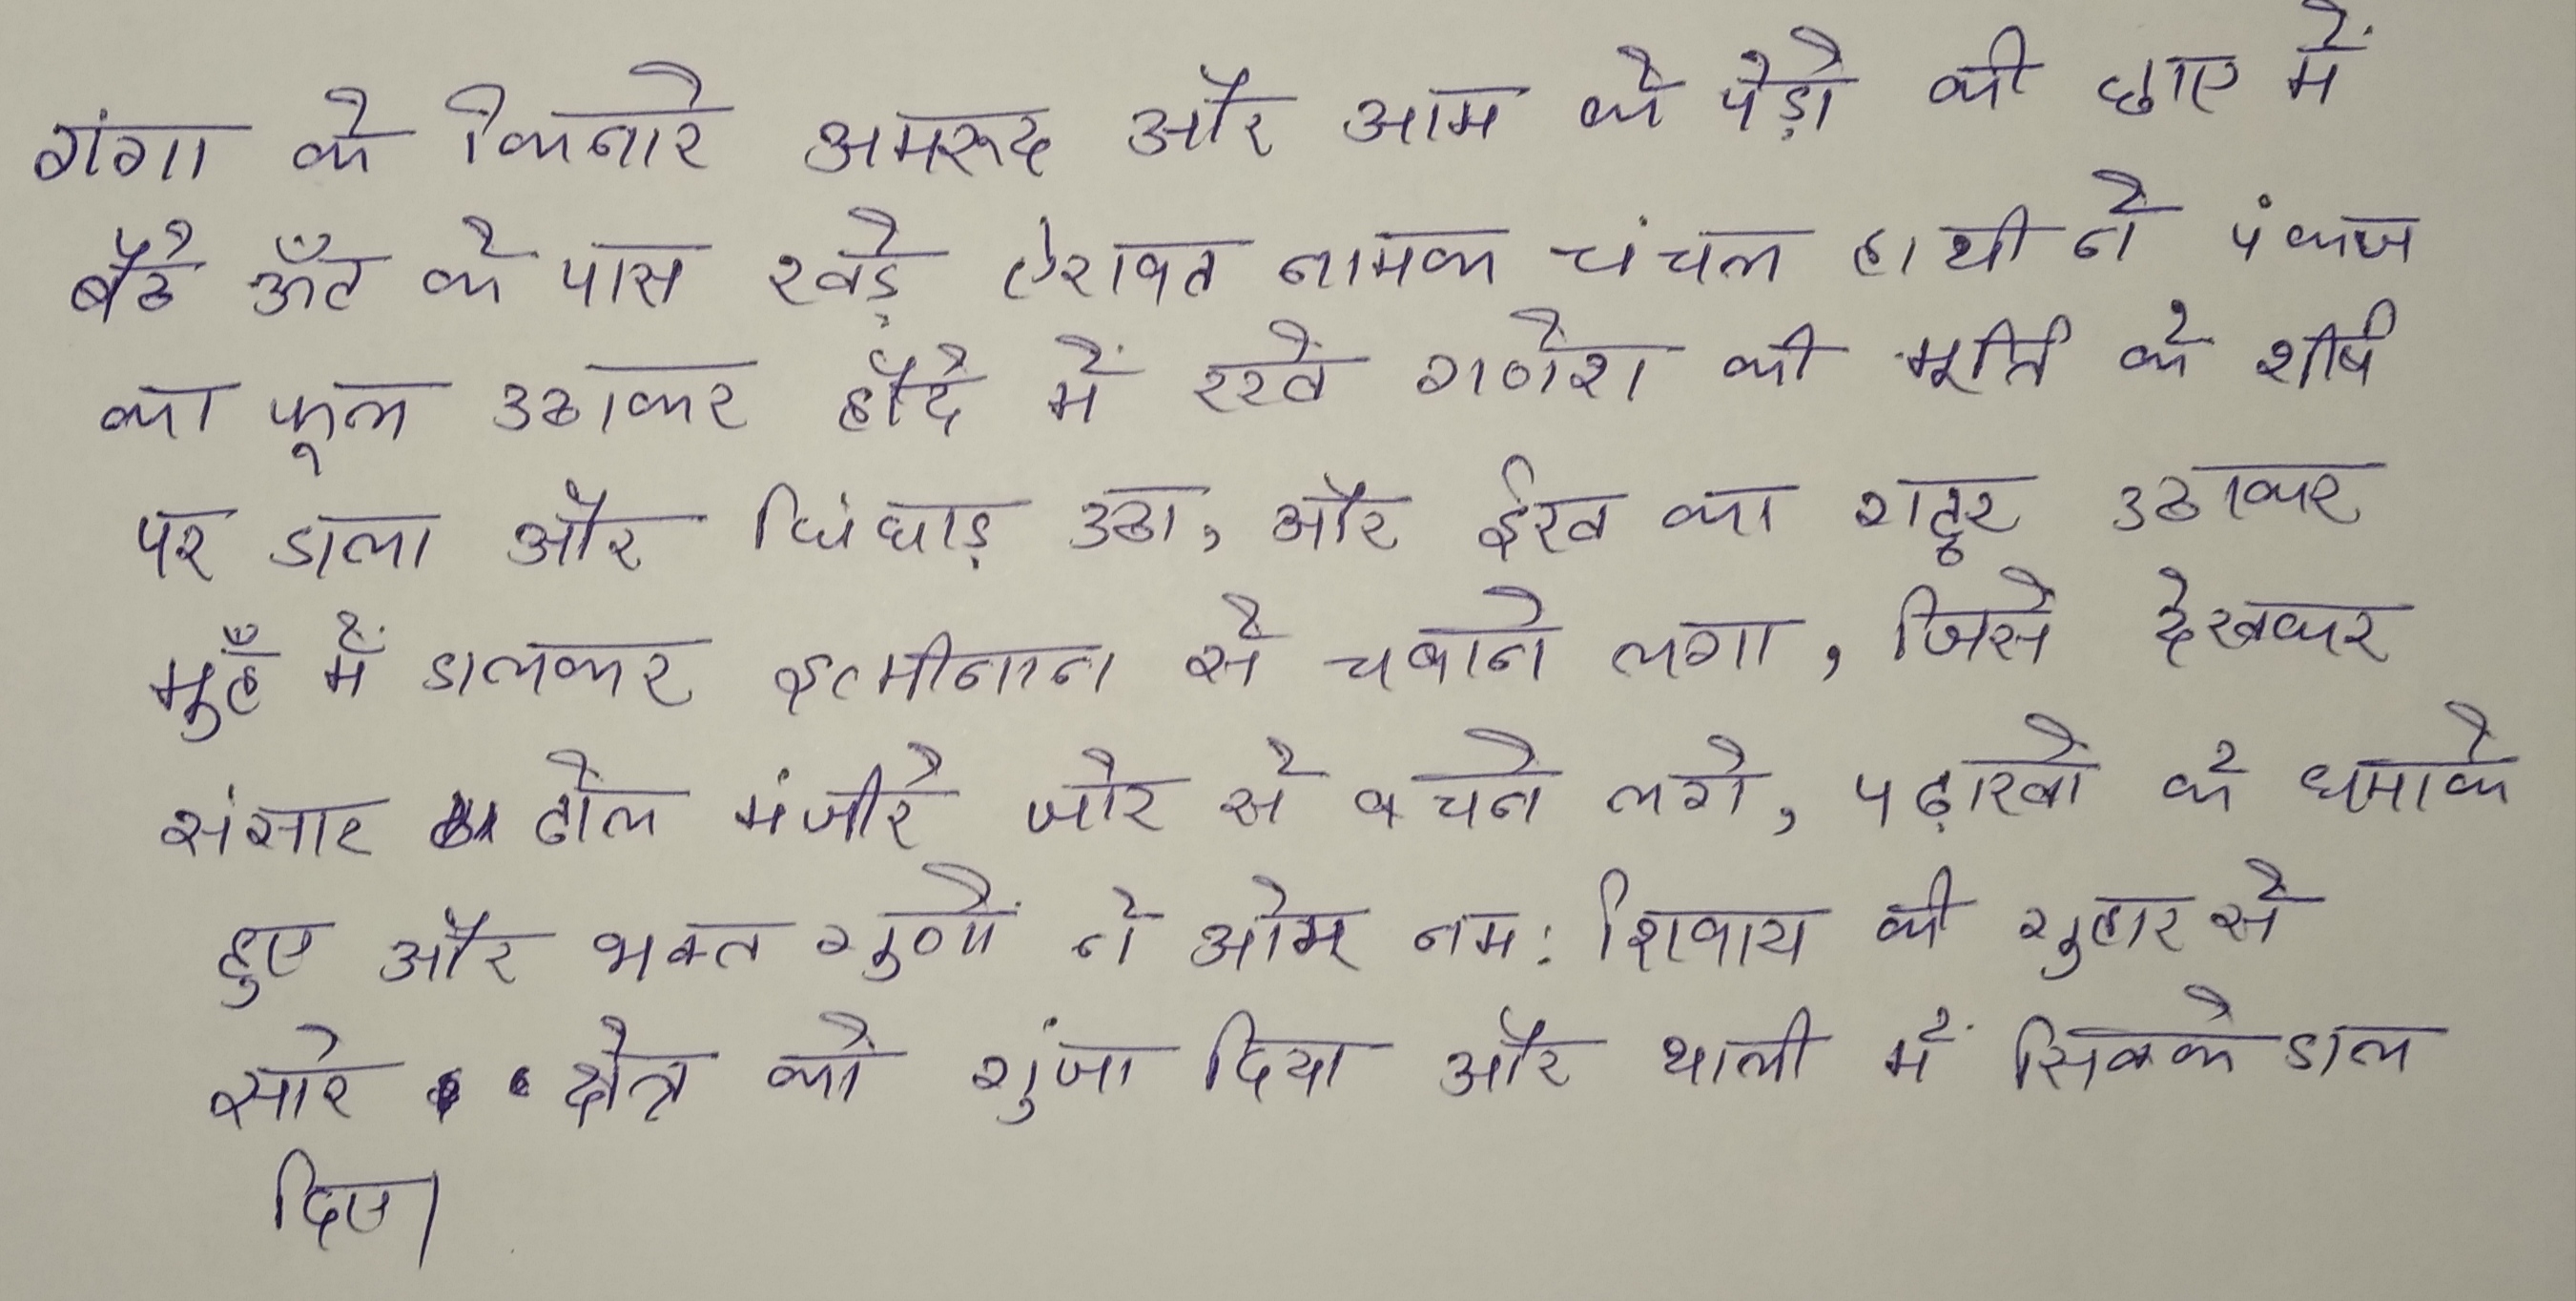 गंगा के किनारे अमरूद और आम के पेड़ो की छाए में
बैठे ऊँट के पास खड़े ऐरावत नामक चंचल हाथी ने पंकज
का फूल उठाकर हौदे में रखे गणेश की मूर्ति के शीर्ष
पर डाला और चिंघाड़ उठा, और ईख का गट्ठर उठाकर
मुहँ में डालकर इत्मीनान से चबाने लगा, जिसे देखकर
संसार ढोल मंजीरे जोर से बजने लगे, पटाखो के धमाके
हुए और भक्त गुणों ने ओम नम: शिवाय की गुहार से
सारे क्षेत्र को गुंजा दिया और थाली में सिक्के डाल
दिए।